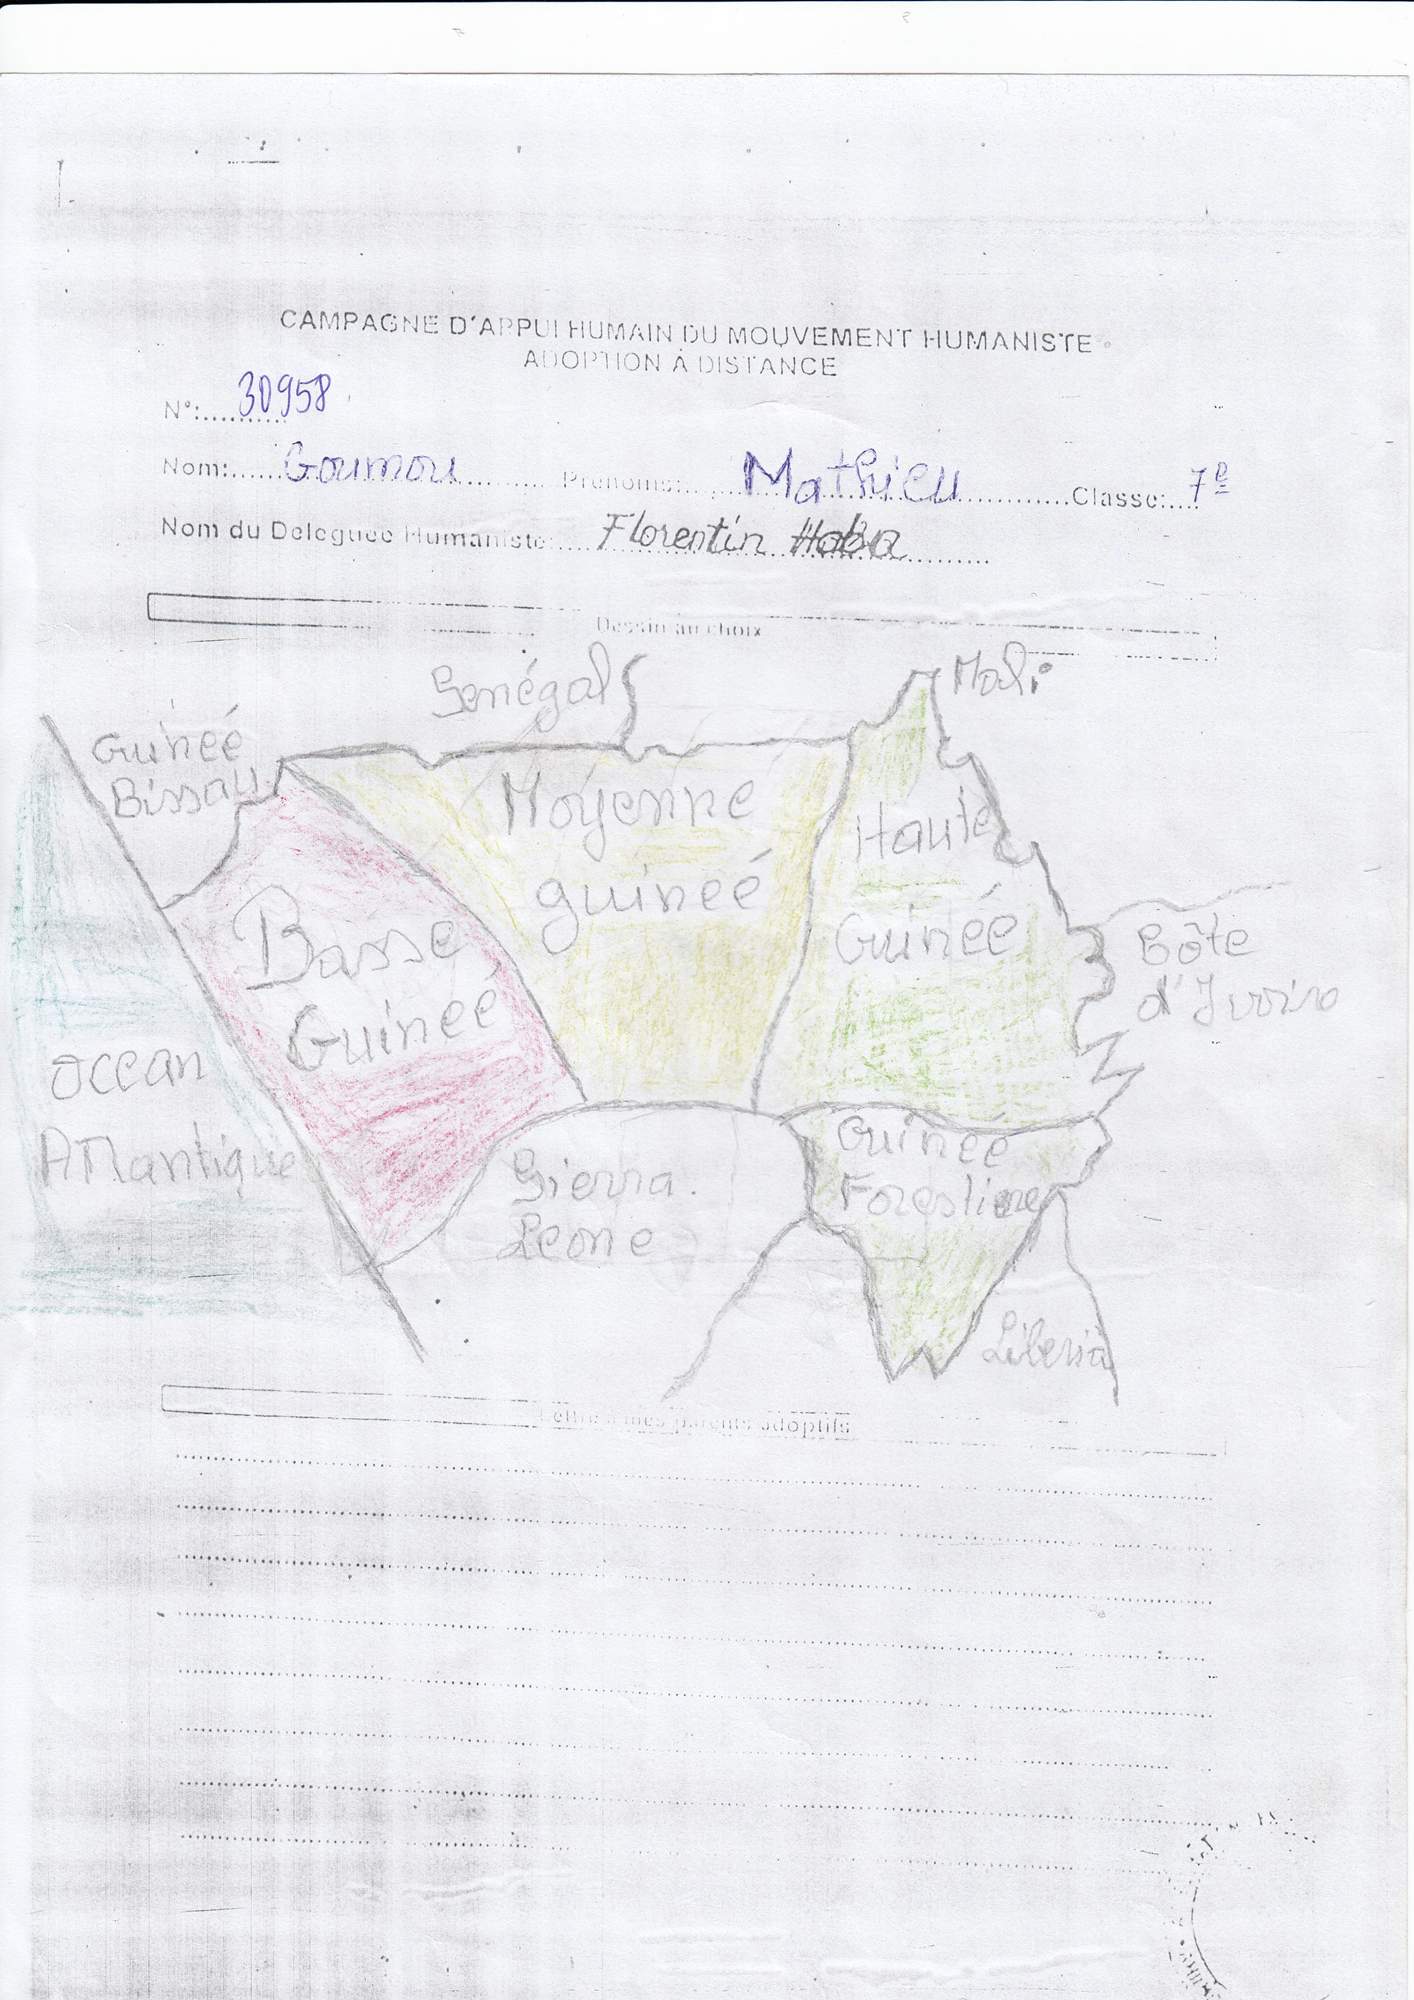 CAMPAGNE D'APPUI HUMAIN DU MOUVEMENT HUMANISTE
ADOPTION À DISTANCE
N°:.......... 30958
Nom:...... Goumou ........ Prénoms:....... Mathieu ............Classe:.... 7e
Nom du Deleguée Humaniste:.... Florentin Haba ........
Dessin au choix
Senégal
Mali
Guineé
Bissau
Moyenne
guineé
Haute
Guineé
Basse
Guineé
Côte
d'Ivoire
Ocean
Atlantique
Sierra
Leone
Guineé
Forestiere
Liberia
Lettre à mes parents adoptifs